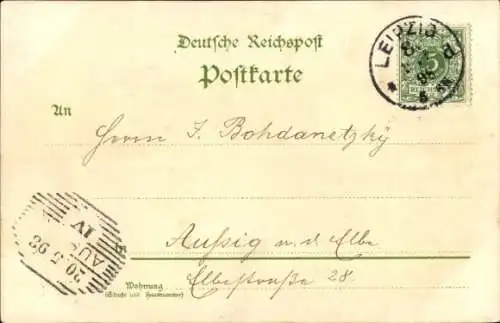 Deutsche Reichspost
Postkarte
LEIPZIG
8
5
98
An
Herrn J. Bohdanetzky
20 5 98
AUS
IV
in
Aussig a. d. Elbe
Wohnung
(Straße und Hausnummer)
Elbestraße 28.